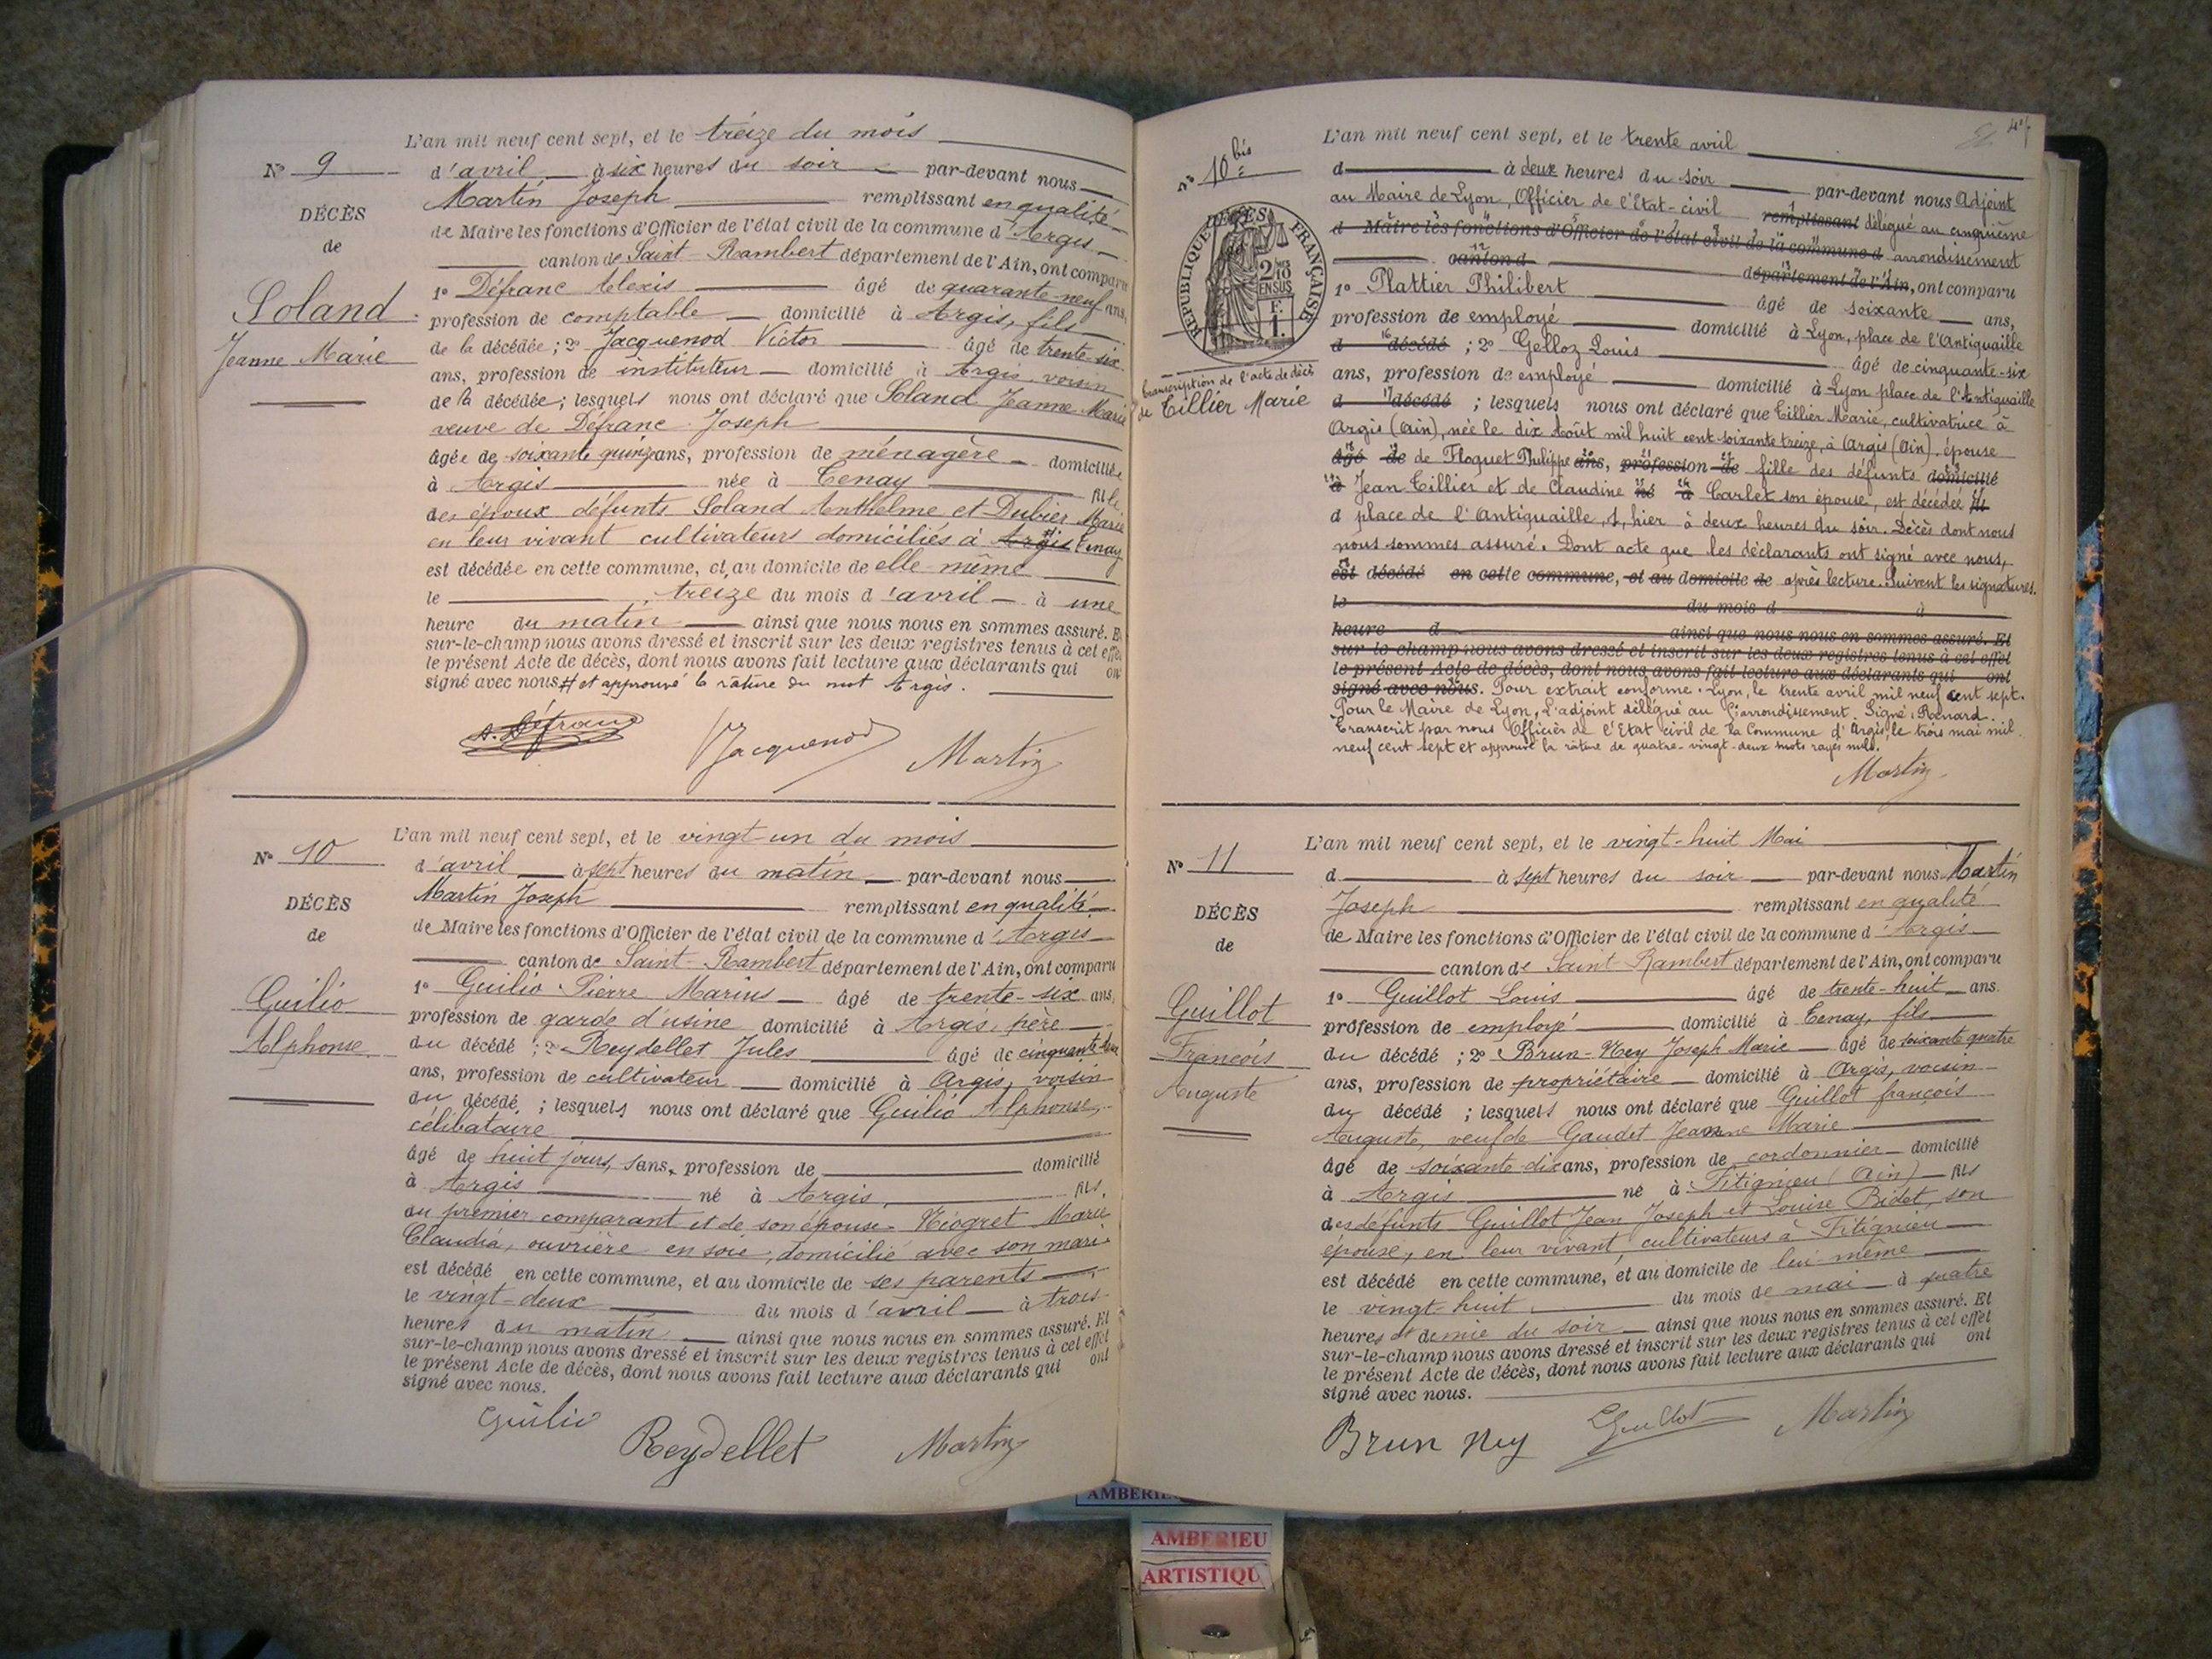 L'an mil neuf cent sept, et le treize du mois
N° 9
d'avril à six heures du soir par-devant nous
Martin Joseph remplissant en qualité
DÉCÈS
de Maire les fonctions d'Officier de l'état civil de la commune d'Argis
de
canton de Saint-Rambert département de l'Ain, ont comparu
Soland
Jeanne Marie
1° Défranc Alexis âgé de quarante-neuf ans,
profession de comptable domicilié à Argis, fils
de la décédée ; 2° Jacquenod Victor âgé de trente-six
ans, profession de instituteur domicilié à Argis, voisin
de la décédée ; lesquels nous ont déclaré que Soland Jeanne Marie
veuve de Défranc Joseph
âgée de soixante quinze ans, profession de ménagère domiciliée
à Argis née à Tenay fille
des époux défunts Soland Anthelme et Dubier Marie
en leur vivant cultivateurs domiciliés à Argis # Tenay
est décédée en cette commune, et au domicile de elle-même
le treize du mois d'avril à une
heure du matin ainsi que nous nous en sommes assuré. Et
sur-le-champ nous avons dressé et inscrit sur les deux registres tenus à cet effet
le présent Acte de décès, dont nous avons fait lecture aux déclarants qui ont
signé avec nous # et approuvé la râture du mot Argis.
A. Défranc Jacquenod Martin
L'an mil neuf cent sept, et le vingt-un du mois
N° 10
d'avril à sept heures du matin par-devant nous
Martin Joseph remplissant en qualité
DÉCÈS
de Maire les fonctions d'Officier de l'état civil de la commune d'Argis
de
canton de Saint-Rambert département de l'Ain, ont comparu
Guilio
Alphonse
1° Guilio Pierre Marius âgé de trente-six ans,
profession de garde d'usine domicilié à Argis, père
du décédé ; 2° Reydellet Jules âgé de cinquante
ans, profession de cultivateur domicilié à Argis, voisin
du décédé ; lesquels nous ont déclaré que Guilio Alphonse,
célibataire
âgé de huit jours, sans, profession de domicilié
à Argis né à Argis, fils,
du premier comparant et de son épouse Néogret Marie
Claudia, ouvrière en soie, domicilié avec son mari
est décédé en cette commune, et au domicile de ses parents
le vingt-deux du mois d'avril à trois
heures du matin ainsi que nous nous en sommes assuré. Et
sur-le-champ nous avons dressé et inscrit sur les deux registres tenus à cet effet
le présent Acte de décès, dont nous avons fait lecture aux déclarants qui ont
signé avec nous.
Guilio Reydellet Martin
L'an mil neuf cent sept, et le trente avril
N° 10 bis
d à deux heures du soir par-devant nous Adjoint
au Maire de Lyon, Officier de l'Etat-civil remplissant délégué au cinquième
d Maire les fonctions d'Officier de l'état civil de la commune d arrondissement
canton d département de l'Ain, ont comparu
RÉPUBLIQUE FRANÇAISE
2/10 EN SUS
F. 1.
1° Plattier Philibert âgé de soixante ans,
profession de employé domicilié à Lyon, place de l'Antiquaille
d décédé ; 2° Gelloz Louis âgé de cinquante-six
ans, profession de employé domicilié à Lyon place de l'Antiquaille
transcription de l'acte de décès
de Tillier Marie
d décédé ; lesquels nous ont déclaré que Tillier Marie, cultivatrice à
Argis (Ain), née le dix Août mil huit cent soixante treize, à Argis (Ain), épouse
âgé de de Floquet Philippe ans, profession de fille des défunts domicilié
à Jean Tillier et de Claudine né à Carlet son épouse, est décédée fil
d place de l'Antiquaille, 1, hier à deux heures du soir. Décès dont nous
nous sommes assuré. Dont acte que les déclarants ont signé avec nous,
est décédé en cette commune, et au domicile de après lecture. Suivent les signatures.
le du mois d à
heure d ainsi que nous nous en sommes assuré. Et
sur-le-champ nous avons dressé et inscrit sur les deux registres tenus à cet effet
le présent Acte de décès, dont nous avons fait lecture aux déclarants qui ont
signé avec nous. Pour extrait conforme. Lyon, le trente avril mil neuf cent sept.
Pour le Maire de Lyon, L'adjoint délégué au arrondissement. Signé : Renard.
Transcrit par nous Officier de l'Etat civil de la Commune d'Argis, le trois mai mil
neuf cent sept et approuvé la râture de quatre-vingt-deux mots rayés nuls.
Martin
L'an mil neuf cent sept, et le vingt-huit Mai
N° 11
d à sept heures du soir par-devant nous Martin
Joseph remplissant en qualité
DÉCÈS
de Maire les fonctions d'Officier de l'état civil de la commune d'Argis
de
canton de Saint Rambert département de l'Ain, ont comparu
Guillot
François
Auguste
1° Guillot Louis âgé de trente-huit ans.
profession de employé domicilié à Tenay, fils
du décédé ; 2° Brun-Ney Joseph Marie âgé de soixante quatre
ans, profession de propriétaire domicilié à Argis, voisin
du décédé ; lesquels nous ont déclaré que Guillot françois
Auguste, veuf de Gaudet Jeanne Marie
âgé de soixante-dix ans, profession de cordonnier domicilié
à Argis né à Fitignieu (Ain) fils
des défunts Guillot Jean Joseph et Louise Bidet, son
épouse, en leur vivant, cultivateurs à Fitignieu
est décédé en cette commune, et au domicile de lui-même
le vingt-huit du mois de mai à quatre
heures et demie du soir ainsi que nous nous en sommes assuré. Et
sur-le-champ nous avons dressé et inscrit sur les deux registres tenus à cet effet
le présent Acte de décès, dont nous avons fait lecture aux déclarants qui ont
signé avec nous.
Brun Ney L Guillot Martin
AMBERIEU
AMBERIEU
ARTISTIQU